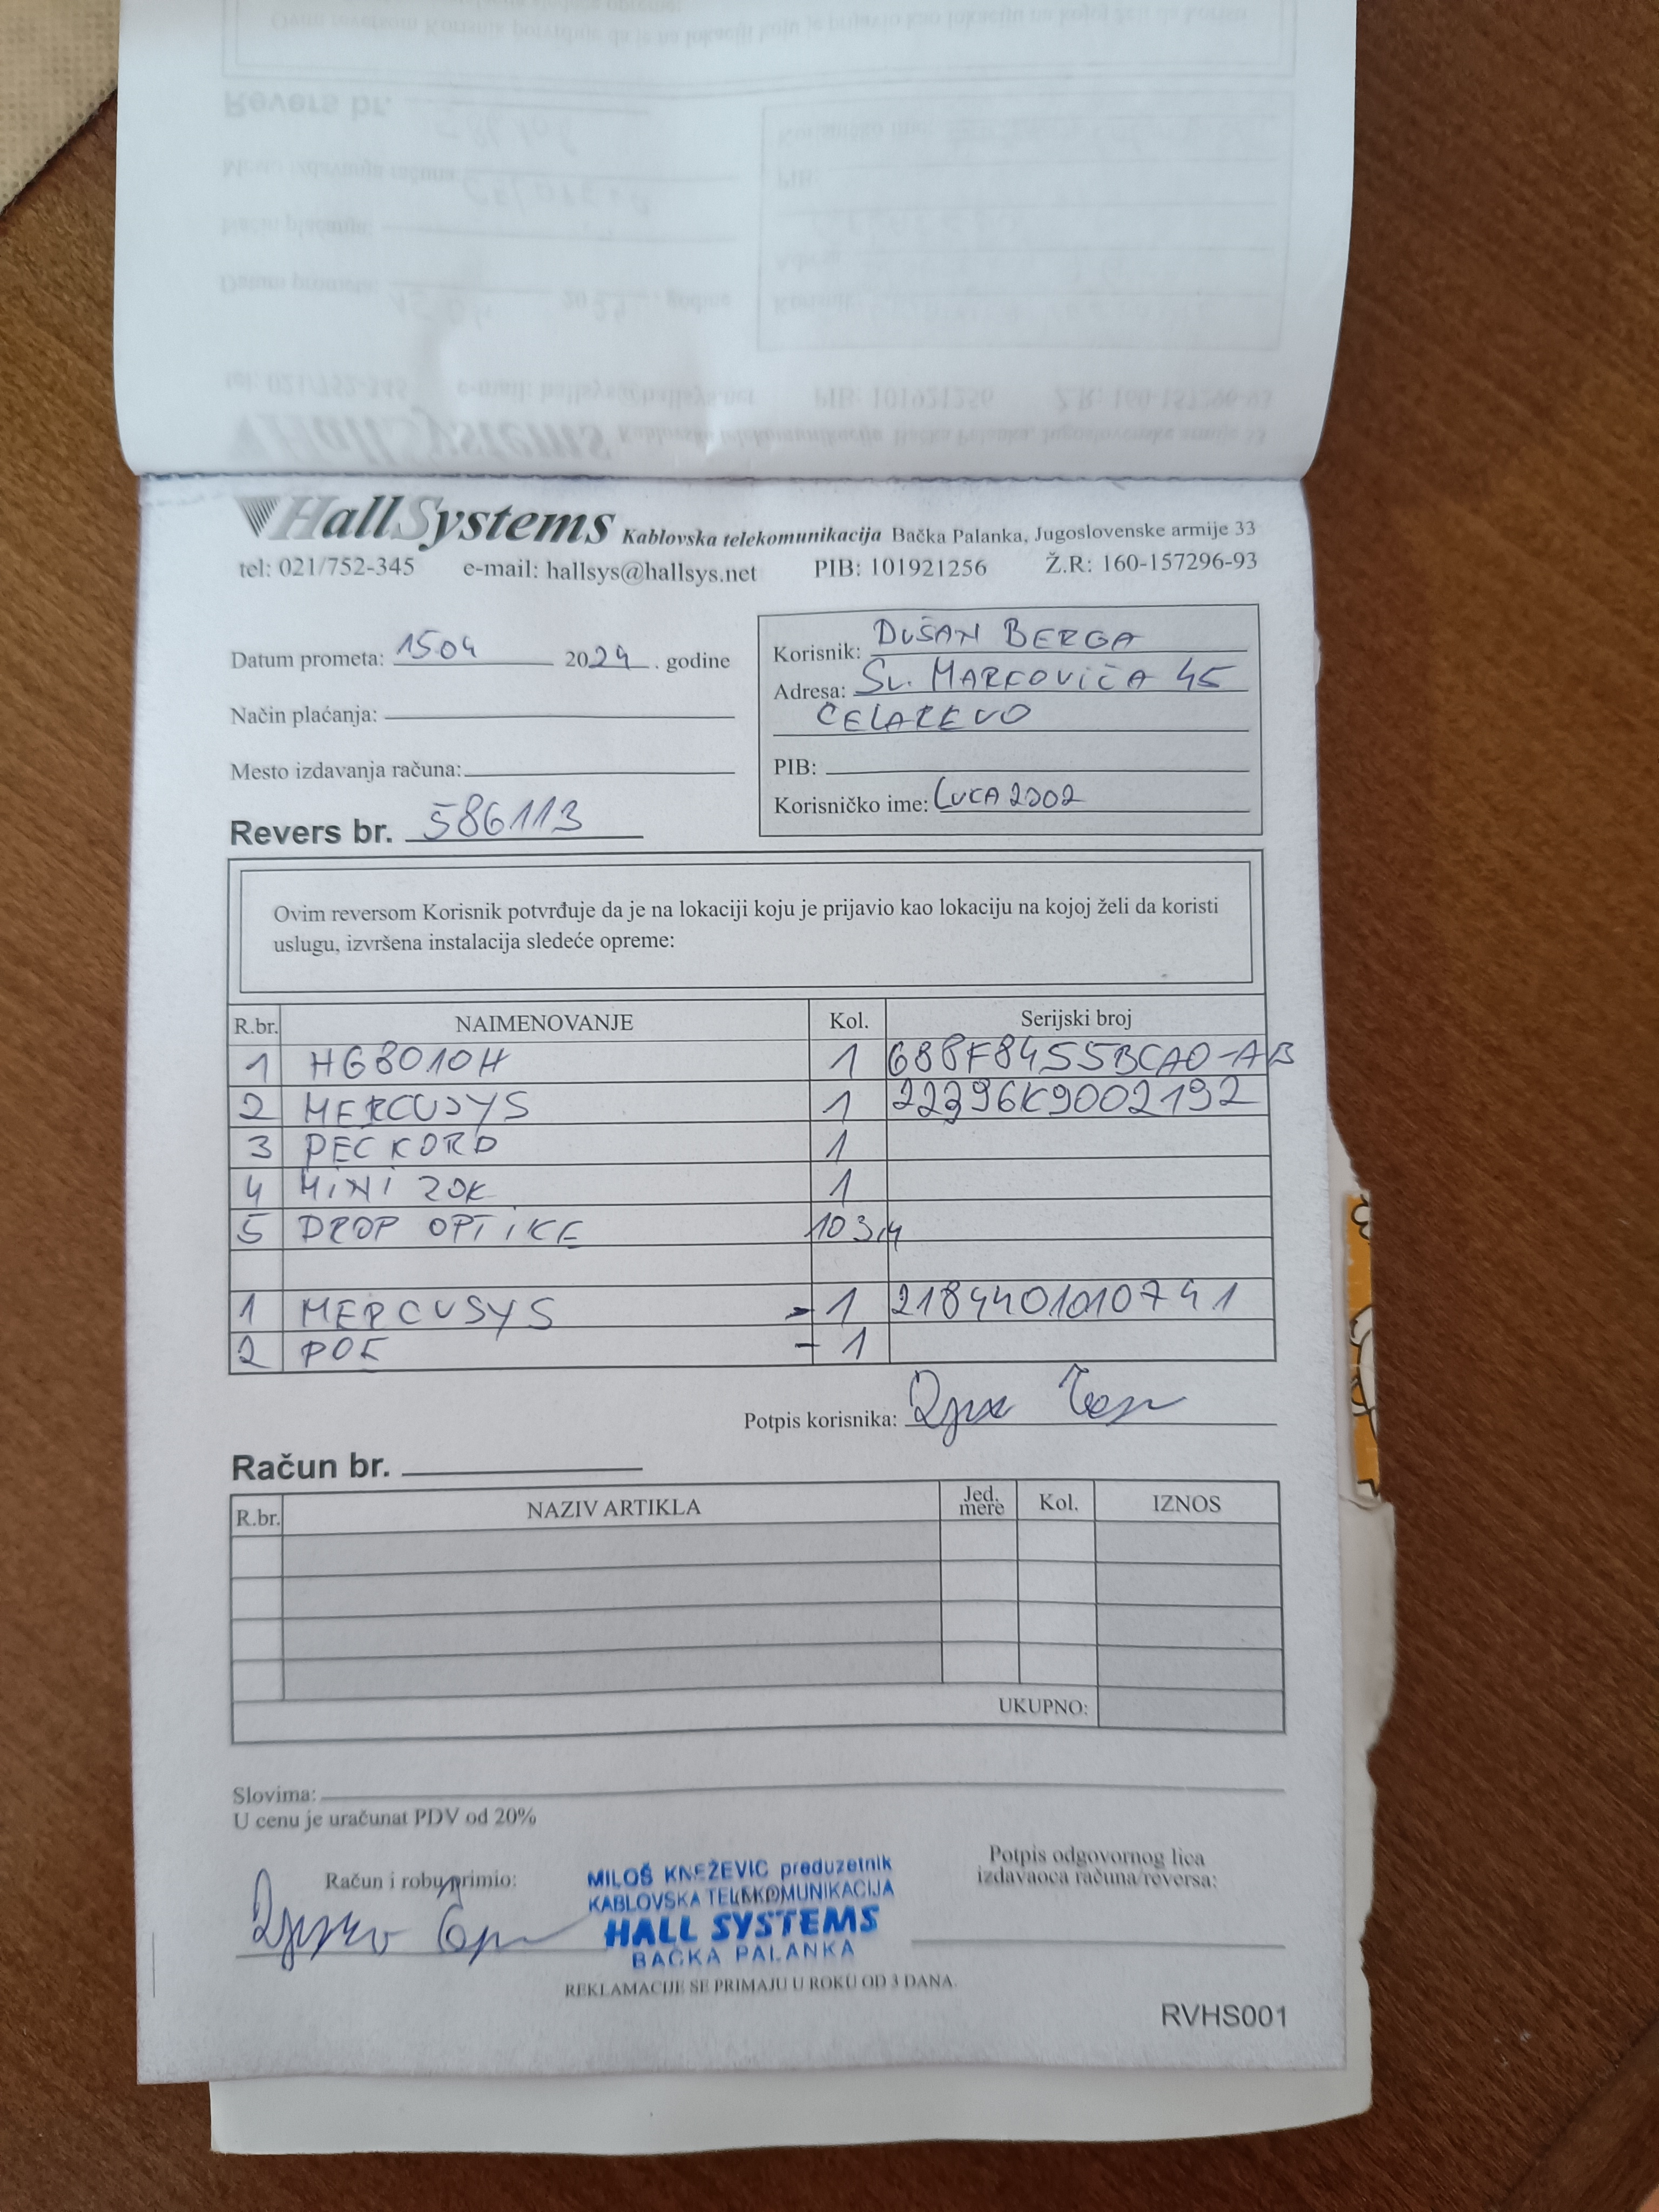 HallSystems Kablovska telekomunikacija Bačka Palanka, Jugoslovenske armije 33
tel: 021/752-345 e-mail: hallsys@hallsys.net PIB: 101921256 Ž.R: 160-157296-93
Datum prometa: 1504 2024. godine
Način plaćanja:
Mesto izdavanja računa:
Revers br. 586113
Korisnik: DUŠAN BERGA
Adresa: SV. MARKOVIĆA 45
ČELAREVO
PIB:
Korisničko ime: LUCA2002
Ovim reversom Korisnik potvrđuje da je na lokaciji koju je prijavio kao lokaciju na kojoj želi da koristi
uslugu, izvršena instalacija sledeće opreme:
R.br. NAIMENOVANJE Kol. Serijski broj
1 HG8010H 1 688F8455BCA0-AB
2 MERCUSYS 1 22396K9002192
3 PEC KORD 1
4 MINI ZOK 1
5 DROP OPTIKE 103M
1 MERCUSYS -1 2184401010741
2 POE -1
Potpis korisnika:
Račun br.
R.br. NAZIV ARTIKLA Jed. mere Kol. IZNOS
UKUPNO:
Slovima:
U cenu je uračunat PDV od 20%
Račun i robu primio:
MILOŠ KNEŽEVIĆ preduzetnik
KABLOVSKA TELEKOMUNIKACIJA
HALL SYSTEMS
BAČKA PALANKA
Potpis odgovornog lica
izdavaoca računa/reversa:
REKLAMACIJE SE PRIMAJU U ROKU OD 3 DANA.
RVHS001